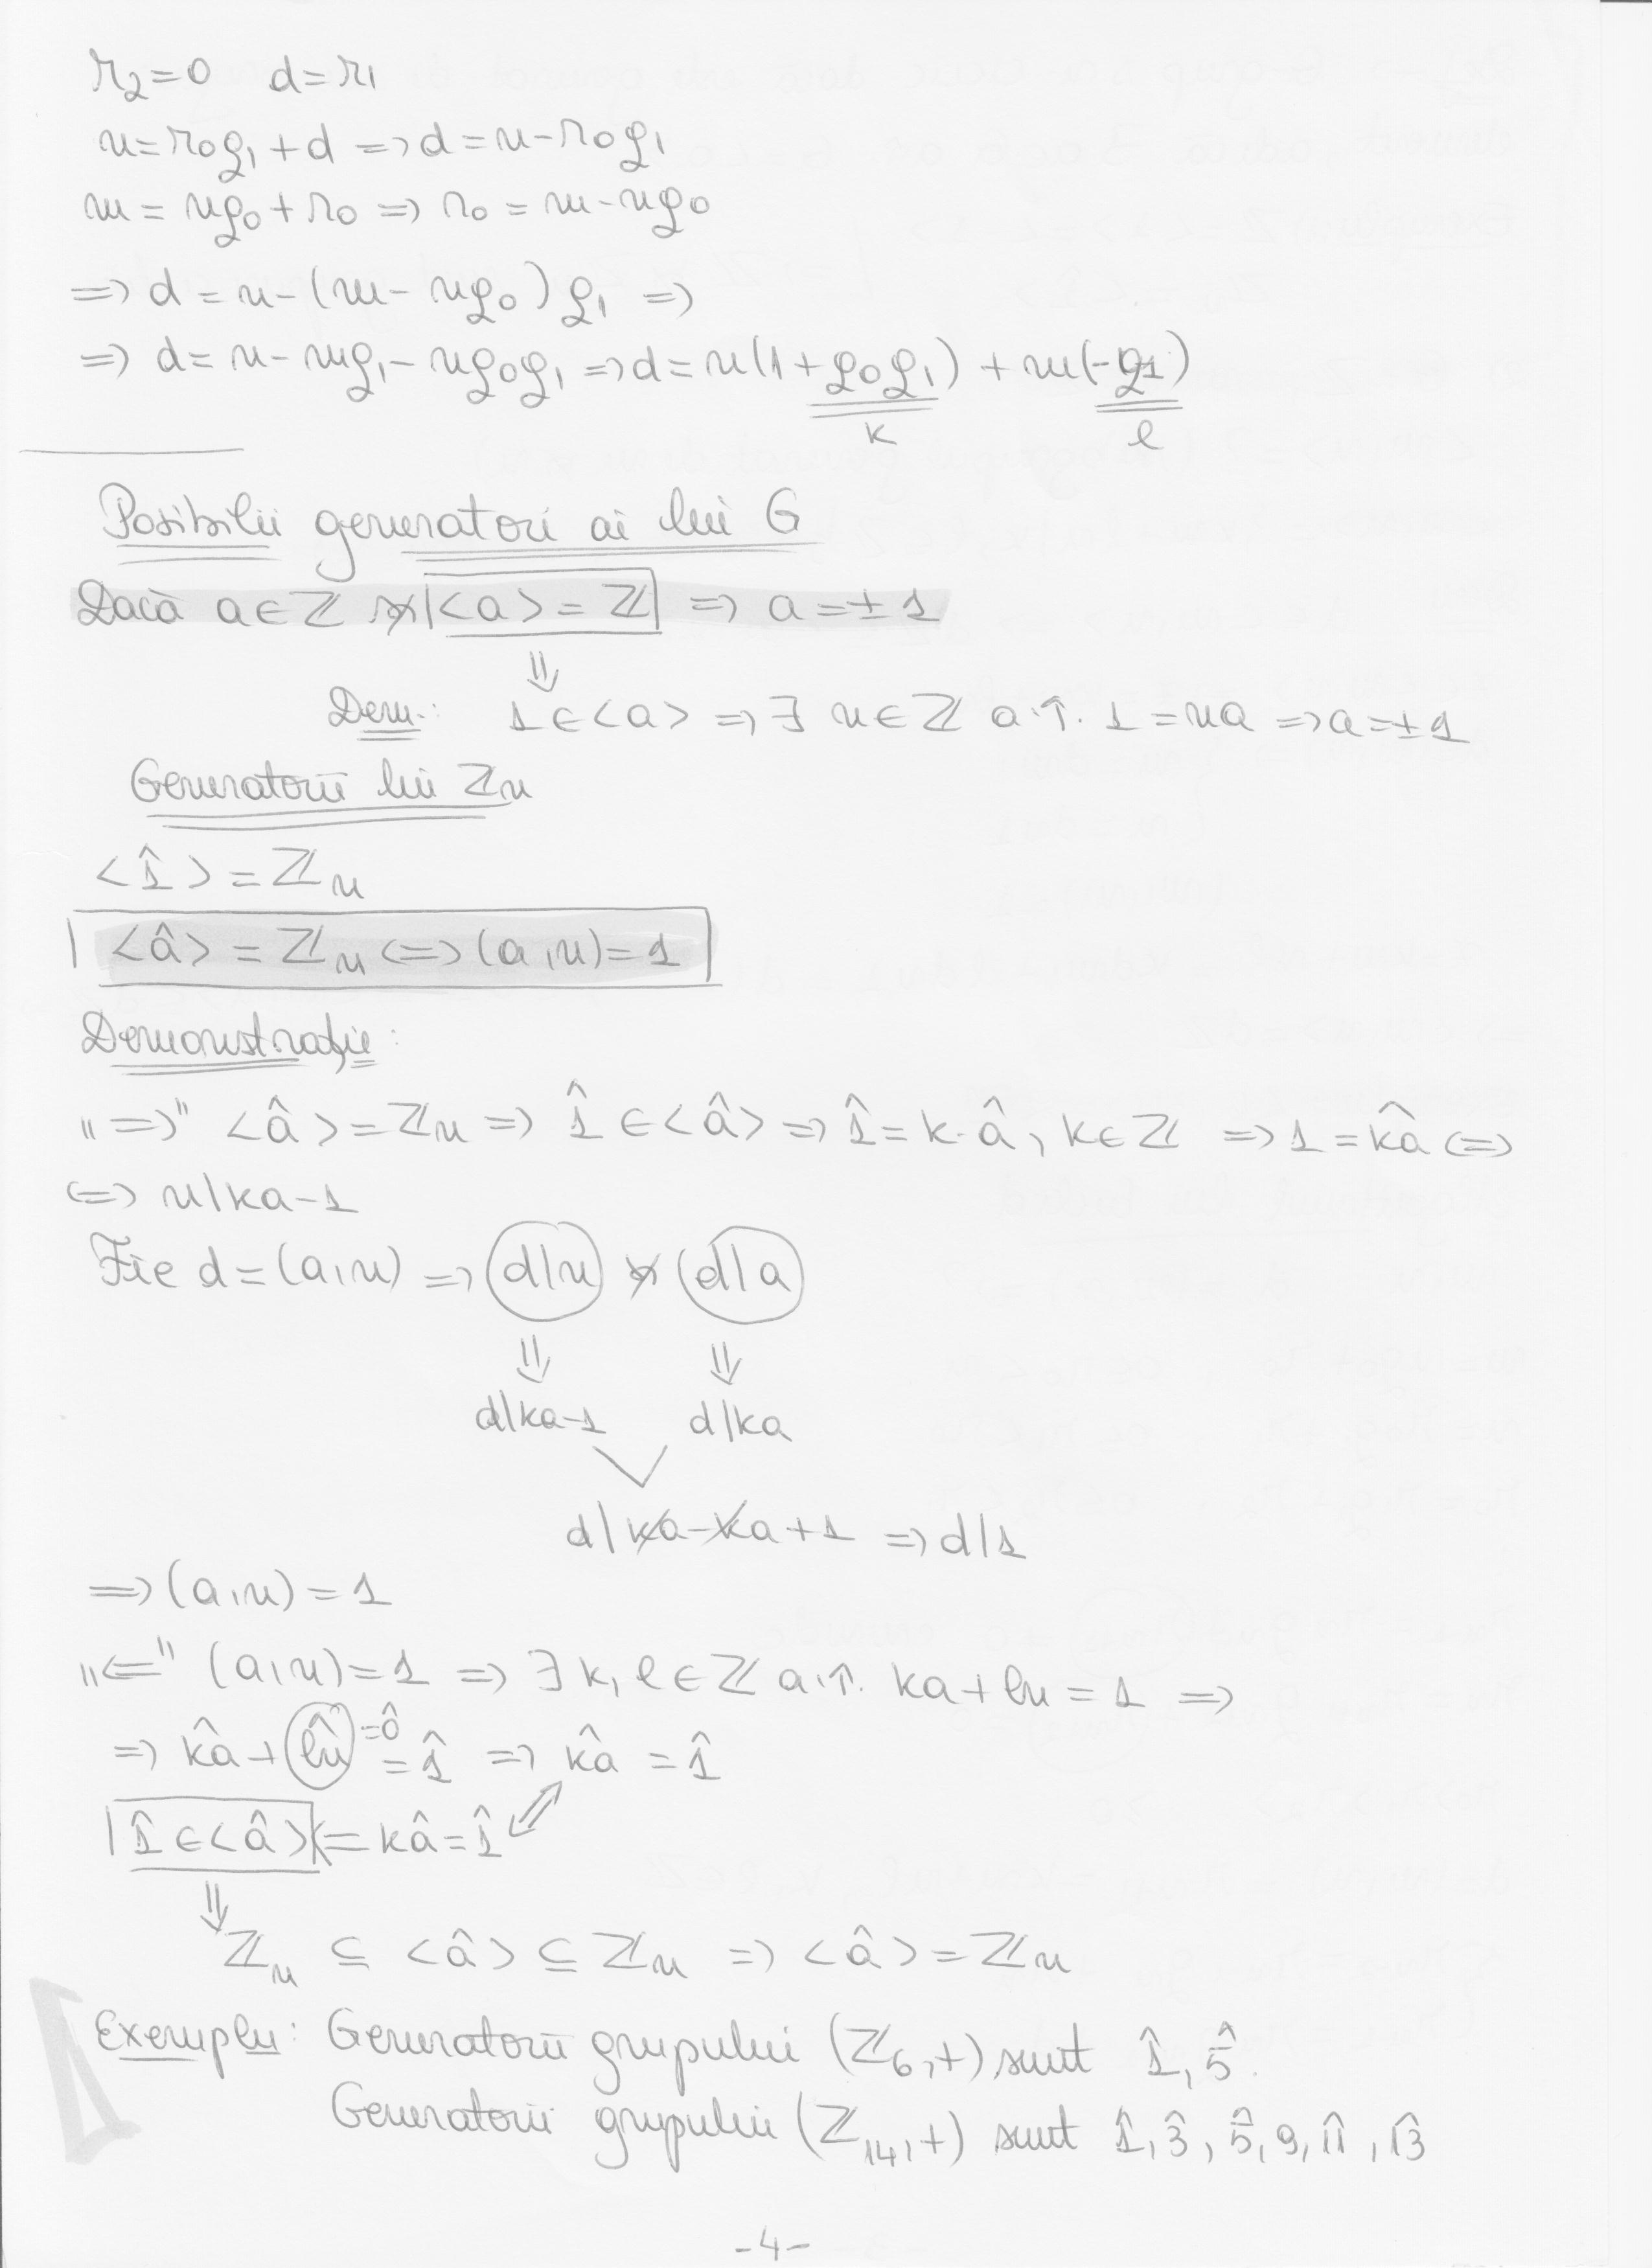 r₂=0 d=r₁
n=r₀q₁+d => d=n-r₀q₁
m=nq₀+r₀ => r₀=m-nq₀
=> d=n-(m-nq₀)q₁ =>
=> d=n-mq₁-nq₀q₁ => d=n(1+q₀q₁)+m(-q₁)
k l
Posibilii generatori ai lui G
Dacă a∈ℤ și <a>=ℤ => a=±1
⇓
Dem.: 1∈<a> => ∃ n∈ℤ a.î. 1=na => a=±1
Generatorii lui ℤₙ
<1̂>=ℤₙ
<â>=ℤₙ <=> (a,n)=1
Demonstrație:
„=>" <â>=ℤₙ => 1̂∈<â> => 1̂=k·â, k∈ℤ => 1=k̂a <=>
<=> n|ka-1
Fie d=(a,n) => d|n și d|a
⇓ ⇓
d|ka-1 d|ka
d|ka-ka+1 => d|1
=> (a,n)=1
„<=" (a,n)=1 => ∃ k,l∈ℤ a.î. ka+ln=1 =>
=> k̂a+l̂n=0̂ =1̂ => k̂a=1̂
1̂∈<â> <= kâ=1̂
⇓
ℤₙ ⊆ <â> ⊆ ℤₙ => <â>=ℤₙ
Exemplu: Generatorii grupului (ℤ₆,+) sunt 1̂, 5̂.
Generatorii grupului (ℤ₁₄,+) sunt 1̂, 3̂, 5̂, 9, 1̂1, 1̂3
-4-